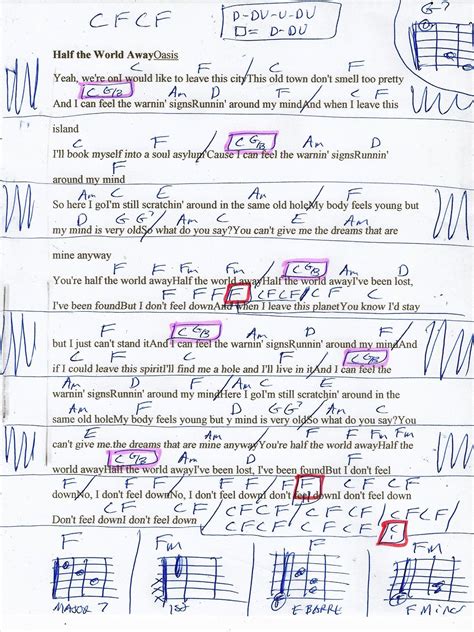 C F C F
D-DU-U-DU
□= D-DU
G7
Half the World AwayOasis
C F C F C F
Yeah, we're onI would like to leave this cityThis old town don't smell too pretty
C G/B Am D F C
And I can feel the warnin' signsRunnin' around my mindAnd when I leave this
island
F C F C G/B Am D
I'll book myself into a soul asylum'Cause I can feel the warnin' signsRunnin'
F
around my mind
Am C E Am F
So here I goI'm still scratchin' around in the same old holeMy body feels young but
D G G7 Am C E
my mind is very oldSo what do you say?You can't give me the dreams that are
Am
mine anyway
F F Fm Fm C G/B Am D
You're half the world awayHalf the world awayHalf the world awayI've been lost,
F F F F CFCF CF C
I've been foundBut I don't feel downAnd when I leave this planetYou know I'd stay
F C G/B Am D F
but I just can't stand itAnd I can feel the warnin' signsRunnin' around my mindAnd
C F C F C G/B
if I could leave this spiritI'll find me a hole and I'll live in itAnd I can feel the
Am D F Am C E
warnin' signsRunnin' around my mindHere I goI'm still scratchin' around in the
Am F D G G7 Am C
same old holeMy body feels young but y mind is very oldSo what do you say?You
E Am F F Fm Fm
can't give me the dreams that are mine anywayYou're half the world awayHalf the
C G/B Am D F
world awayHalf the world awayI've been lost, I've been foundBut I don't feel
downNo, I don't feel downNo, I don't feel downI don't feel downI don't feel down
Don't feel downI don't feel down
F
Fm
F
Fm
MAJOR 7
1st
E BARRE
F Minor